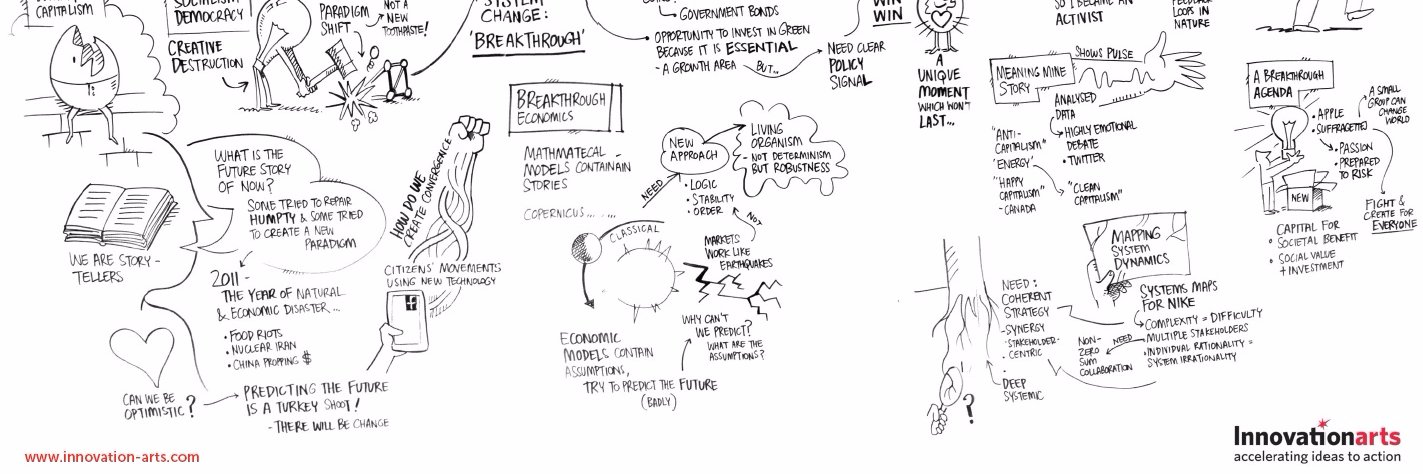 CAPITALISM
SOCIALISM
DEMOCRACY
CREATIVE
DESTRUCTION
PARADIGM
SHIFT
NOT A
NEW
TOOTHPASTE!
SYSTEM
CHANGE:
'BREAKTHROUGH'
GOVERNMENT BONDS
• OPPORTUNITY TO INVEST IN GREEN
BECAUSE IT IS ESSENTIAL
- A GROWTH AREA BUT...
NEED CLEAR
POLICY
SIGNAL
WIN
WIN
A
UNIQUE
MOMENT
WHICH WON'T
LAST...
SO I BECAME AN
ACTIVIST
FEEDBACK
LOOPS IN
NATURE
WE ARE STORY-
TELLERS
WHAT IS THE
FUTURE STORY
OF NOW?
SOME TRIED TO REPAIR
HUMPTY & SOME TRIED
TO CREATE A NEW
PARADIGM
2011 -
THE YEAR OF NATURAL
& ECONOMIC DISASTER...
• FOOD RIOTS
• NUCLEAR IRAN
• CHINA PROPPING $
CAN WE BE
OPTIMISTIC?
PREDICTING THE FUTURE
IS A TURKEY SHOOT!
- THERE WILL BE CHANGE
HOW DO WE
CREATE CONVERGENCE
CITIZENS' MOVEMENTS
USING NEW TECHNOLOGY
BREAKTHROUGH
ECONOMICS
MATHMATECAL
MODELS CONTAINAIN
STORIES
COPERNICUS......
CLASSICAL
ECONOMIC
MODELS CONTAIN
ASSUMPTIONS,
TRY TO PREDICT THE FUTURE
(BADLY)
NEED
NEW
APPROACH
• LOGIC
• STABILITY
• ORDER
LIVING
ORGANISM
- NOT DETERMINISM
BUT ROBUSTNESS
NOT
MARKETS
WORK LIKE
EARTHQUAKES
WHY CAN'T
WE PREDICT?
WHAT ARE THE
ASSUMPTIONS?
MEANING MINE
STORY
SHOWS PULSE
ANALYSED
DATA
• HIGHLY EMOTIONAL
DEBATE
• TWITTER
"ANTI-
CAPITALISM"
'ENERGY'
"HAPPY
CAPITALISM"
- CANADA
"CLEAN
CAPITALISM"
MAPPING
SYSTEM
DYNAMICS
SYSTEMS MAPS
FOR NIKE
• COMPLEXITY = DIFFICULTY
• MULTIPLE STAKEHOLDERS
• INDIVIDUAL RATIONALITY =
SYSTEM IRRATIONALITY
NEED
NON-
ZERO
SUM
COLLABORATION
NEED:
COHERENT
STRATEGY
- SYNERGY
- STAKEHOLDER-
CENTRIC
•
DEEP
SYSTEMIC
?
A BREAKTHROUGH
AGENDA
• APPLE
• SUFFRAGETTES
• PASSION
• PREPARED
TO RISK
A SMALL
GROUP CAN
CHANGE
WORLD
FIGHT &
CREATE FOR
EVERYONE
NEW
CAPITAL FOR
• SOCIETAL BENEFIT
• SOCIAL VALUE
+ INVESTMENT
www.innovation-arts.com
Innovationarts
accelerating ideas to action